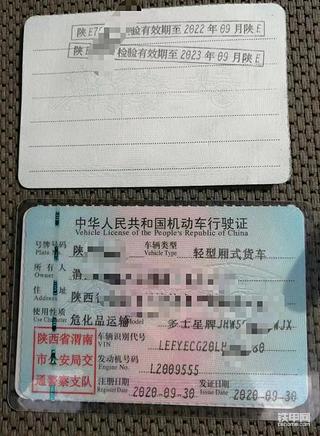 陕E7 检验有效期至2022年09月陕E
陕 检验有效期至2023年09月陕E
中华人民共和国机动车行驶证
Vehicle License of the People's Republic of China
号牌号码 陕 车辆类型 轻型厢式货车
Plate No. Vehicle Type
所有人
Owner
住址 陕西省
Address
使用性质 危化品运输 Model 多士星牌JHW5 WJX
Use Character
陕西省渭南
市公安局交
通警察支队
车辆识别代号 LEFYECG20LH 80
VIN
发动机号码 L2009555
Engine No.
注册日期 2020-09-30 发证日期 2020-09-30
Register Date Issue Date
铁甲网